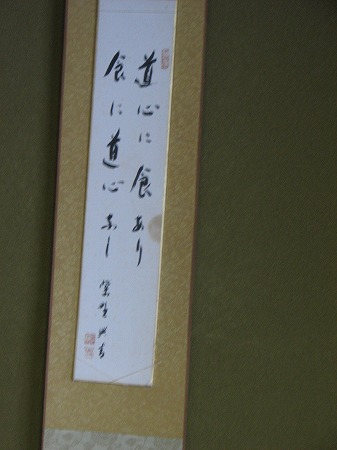 道心に食あり
食に道心なし